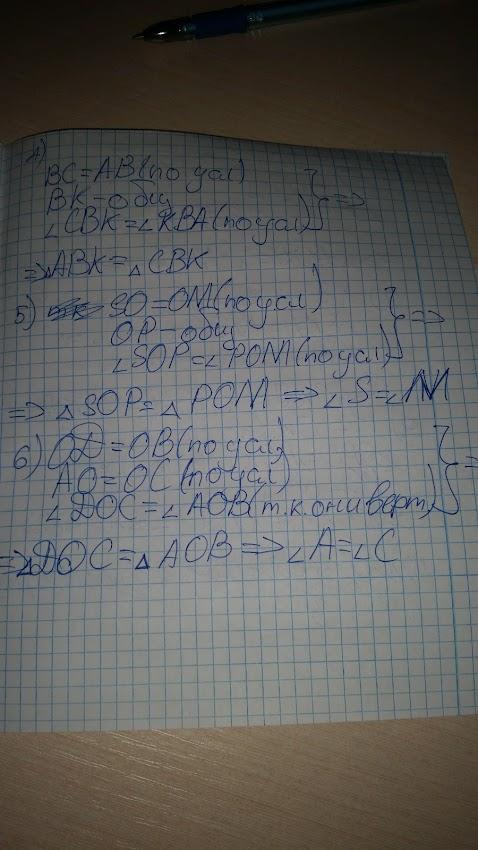 4)
BC=AB(по усл)
BK-общ
∠CBK=∠KBA(по усл) } =>
=> △ABK=△CBK
5) SO=OM(по усл)
OP-общ
∠SOP=∠POM(по усл) } =>
=> △SOP=△POM => ∠S=∠M
6) OD=OB(по усл)
AO=OC(по усл)
∠DOC=∠AOB(т.к. они верт) } =>
=> △DOC=△AOB => ∠A=∠C